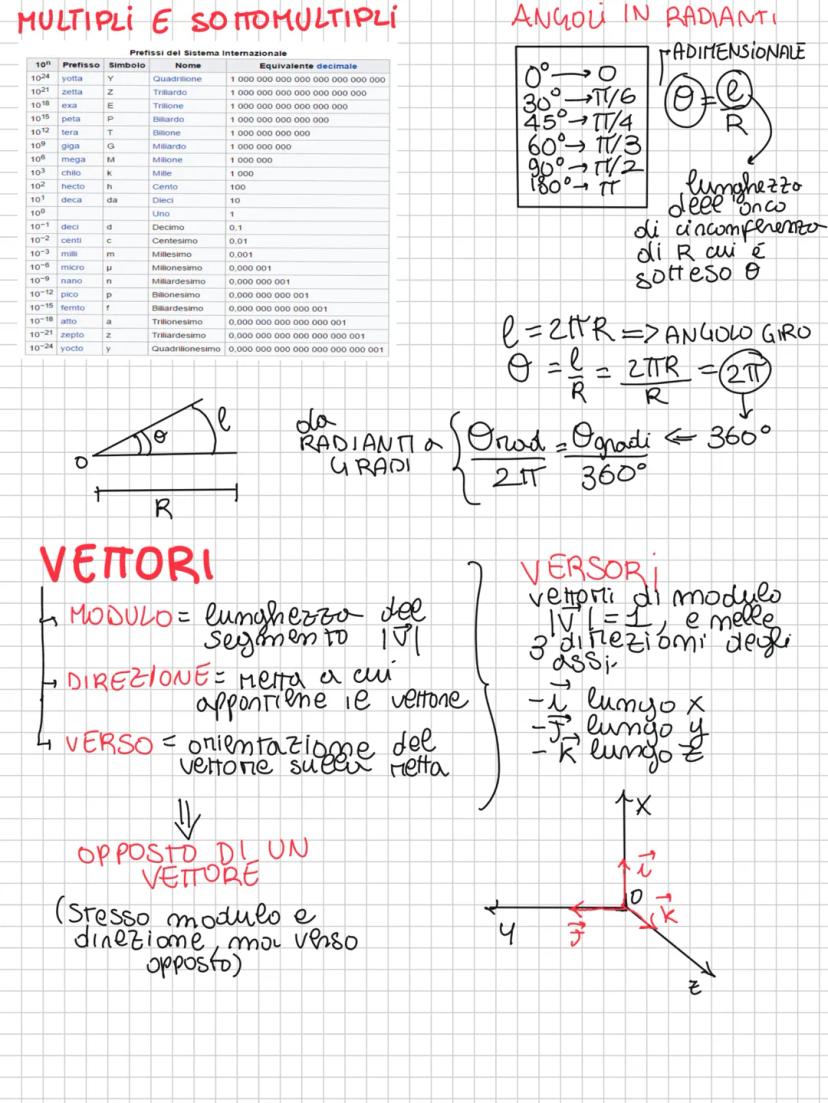 MULTIPLI E SOTTOMULTIPLI
Prefissi del Sistema Internazionale
10ⁿ Prefisso Simbolo Nome Equivalente decimale
10²⁴ yotta Y Quadrilione 1 000 000 000 000 000 000 000 000
10²¹ zetta Z Triliardo 1 000 000 000 000 000 000 000
10¹⁸ exa E Trilione 1 000 000 000 000 000 000
10¹⁵ peta P Biliardo 1 000 000 000 000 000
10¹² tera T Bilione 1 000 000 000 000
10⁹ giga G Miliardo 1 000 000 000
10⁶ mega M Milione 1 000 000
10³ chilo k Mille 1 000
10² hecto h Cento 100
10¹ deca da Dieci 10
10⁰ Uno 1
10⁻¹ deci d Decimo 0,1
10⁻² centi c Centesimo 0,01
10⁻³ milli m Millesimo 0,001
10⁻⁶ micro µ Milionesimo 0,000 001
10⁻⁹ nano n Miliardesimo 0,000 000 001
10⁻¹² pico p Bilionesimo 0,000 000 000 001
10⁻¹⁵ femto f Biliardesimo 0,000 000 000 000 001
10⁻¹⁸ atto a Trilionesimo 0,000 000 000 000 000 001
10⁻²¹ zepto z Triliardesimo 0,000 000 000 000 000 000 001
10⁻²⁴ yocto y Quadrilionesimo 0,000 000 000 000 000 000 000 001
ANGOLI IN RADIANTI
0° → 0
30° → π/6
45° → π/4
60° → π/3
90° → π/2
180° → π
ADIMENSIONALE
θ = l/R
lunghezza
dell'arco
di circonferenza
di R cui é
sotteso θ
l = 2πR => ANGOLO GIRO
θ = l/R = 2πR/R = 2π
O θ l
R
da
RADIANTI a
GRADI
θrad/2π = θgradi/360° ⇐ 360°
VETTORI
MODULO = lunghezza del
segmento |v⃗|
DIREZIONE = retta a cui
appartiene il vettore
VERSO = orientazione del
vettore sulla retta
⇓
OPPOSTO DI UN
VETTORE
(stesso modulo e
direzione, ma verso
opposto)
VERSORI
vettori di modulo
|v⃗| = 1, e nelle
3 direzioni degli
assi.
- i⃗ lungo x
- j⃗ lungo y
- k⃗ lungo z
x
i⃗
O
k⃗
y
j⃗
z